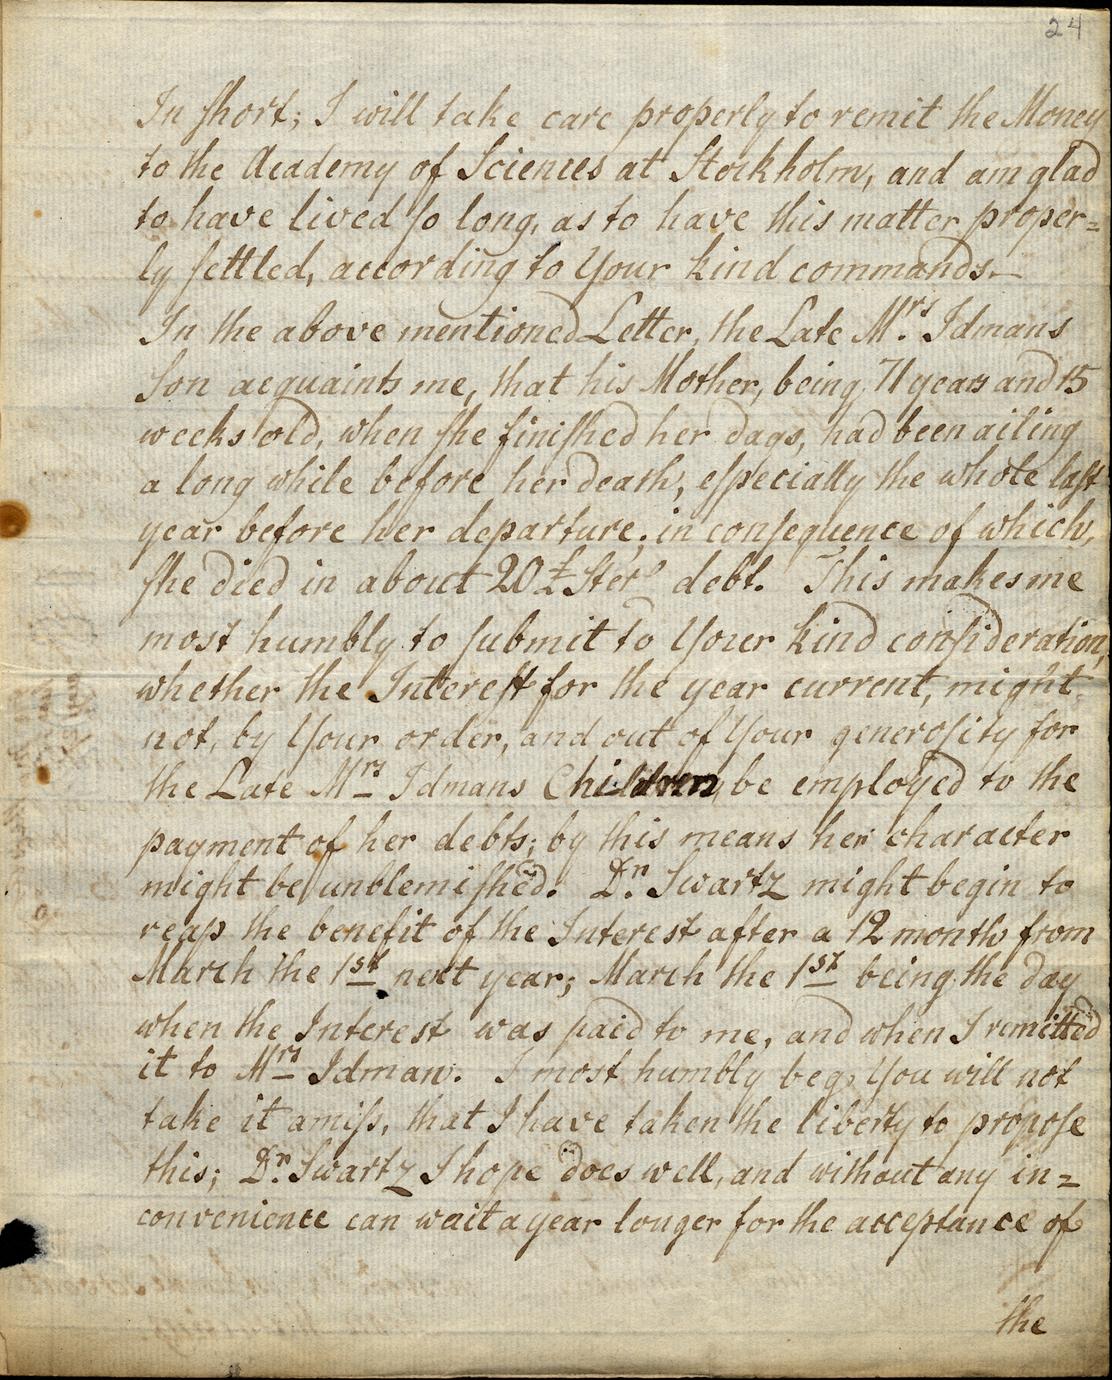 24
In short; I will take care properly to remit the Money
to the Academy of Sciences at Stockholm, and am glad
to have lived so long, as to have this matter proper=
ly settled, according to Your kind commands.—
In the above mentioned Letter, the Late Mrs. Idmans
Son acquaints me, that his Mother, being 71 years and 15
weeks old, when she finished her days, had been ailing
a long while before her death, especially the whole last
year before her departure; in consequence of which,
she died in about 20 £ Ster^s debt. This makes me
most humbly to submit to Your kind consideration,
whether the Interest for the year current, might
not, by Your order, and out of Your generosity for
the Late Mrs Idmans Children, be employed to the
payment of her debts; by this means her character
might be unblemished. Dr. Swartz might begin to
reap the benefit of the Interest after a 12 month from
March the 1st next year; March the 1st being the day
when the Interest was paid to me, and when I remitted
it to Mrs Idman. I most humbly beg, You will not
take it amiss, that I have taken the liberty to propose
this; Dr. Swartz I hope does well, and without any in=
convenience can wait a year longer for the acceptance of
the